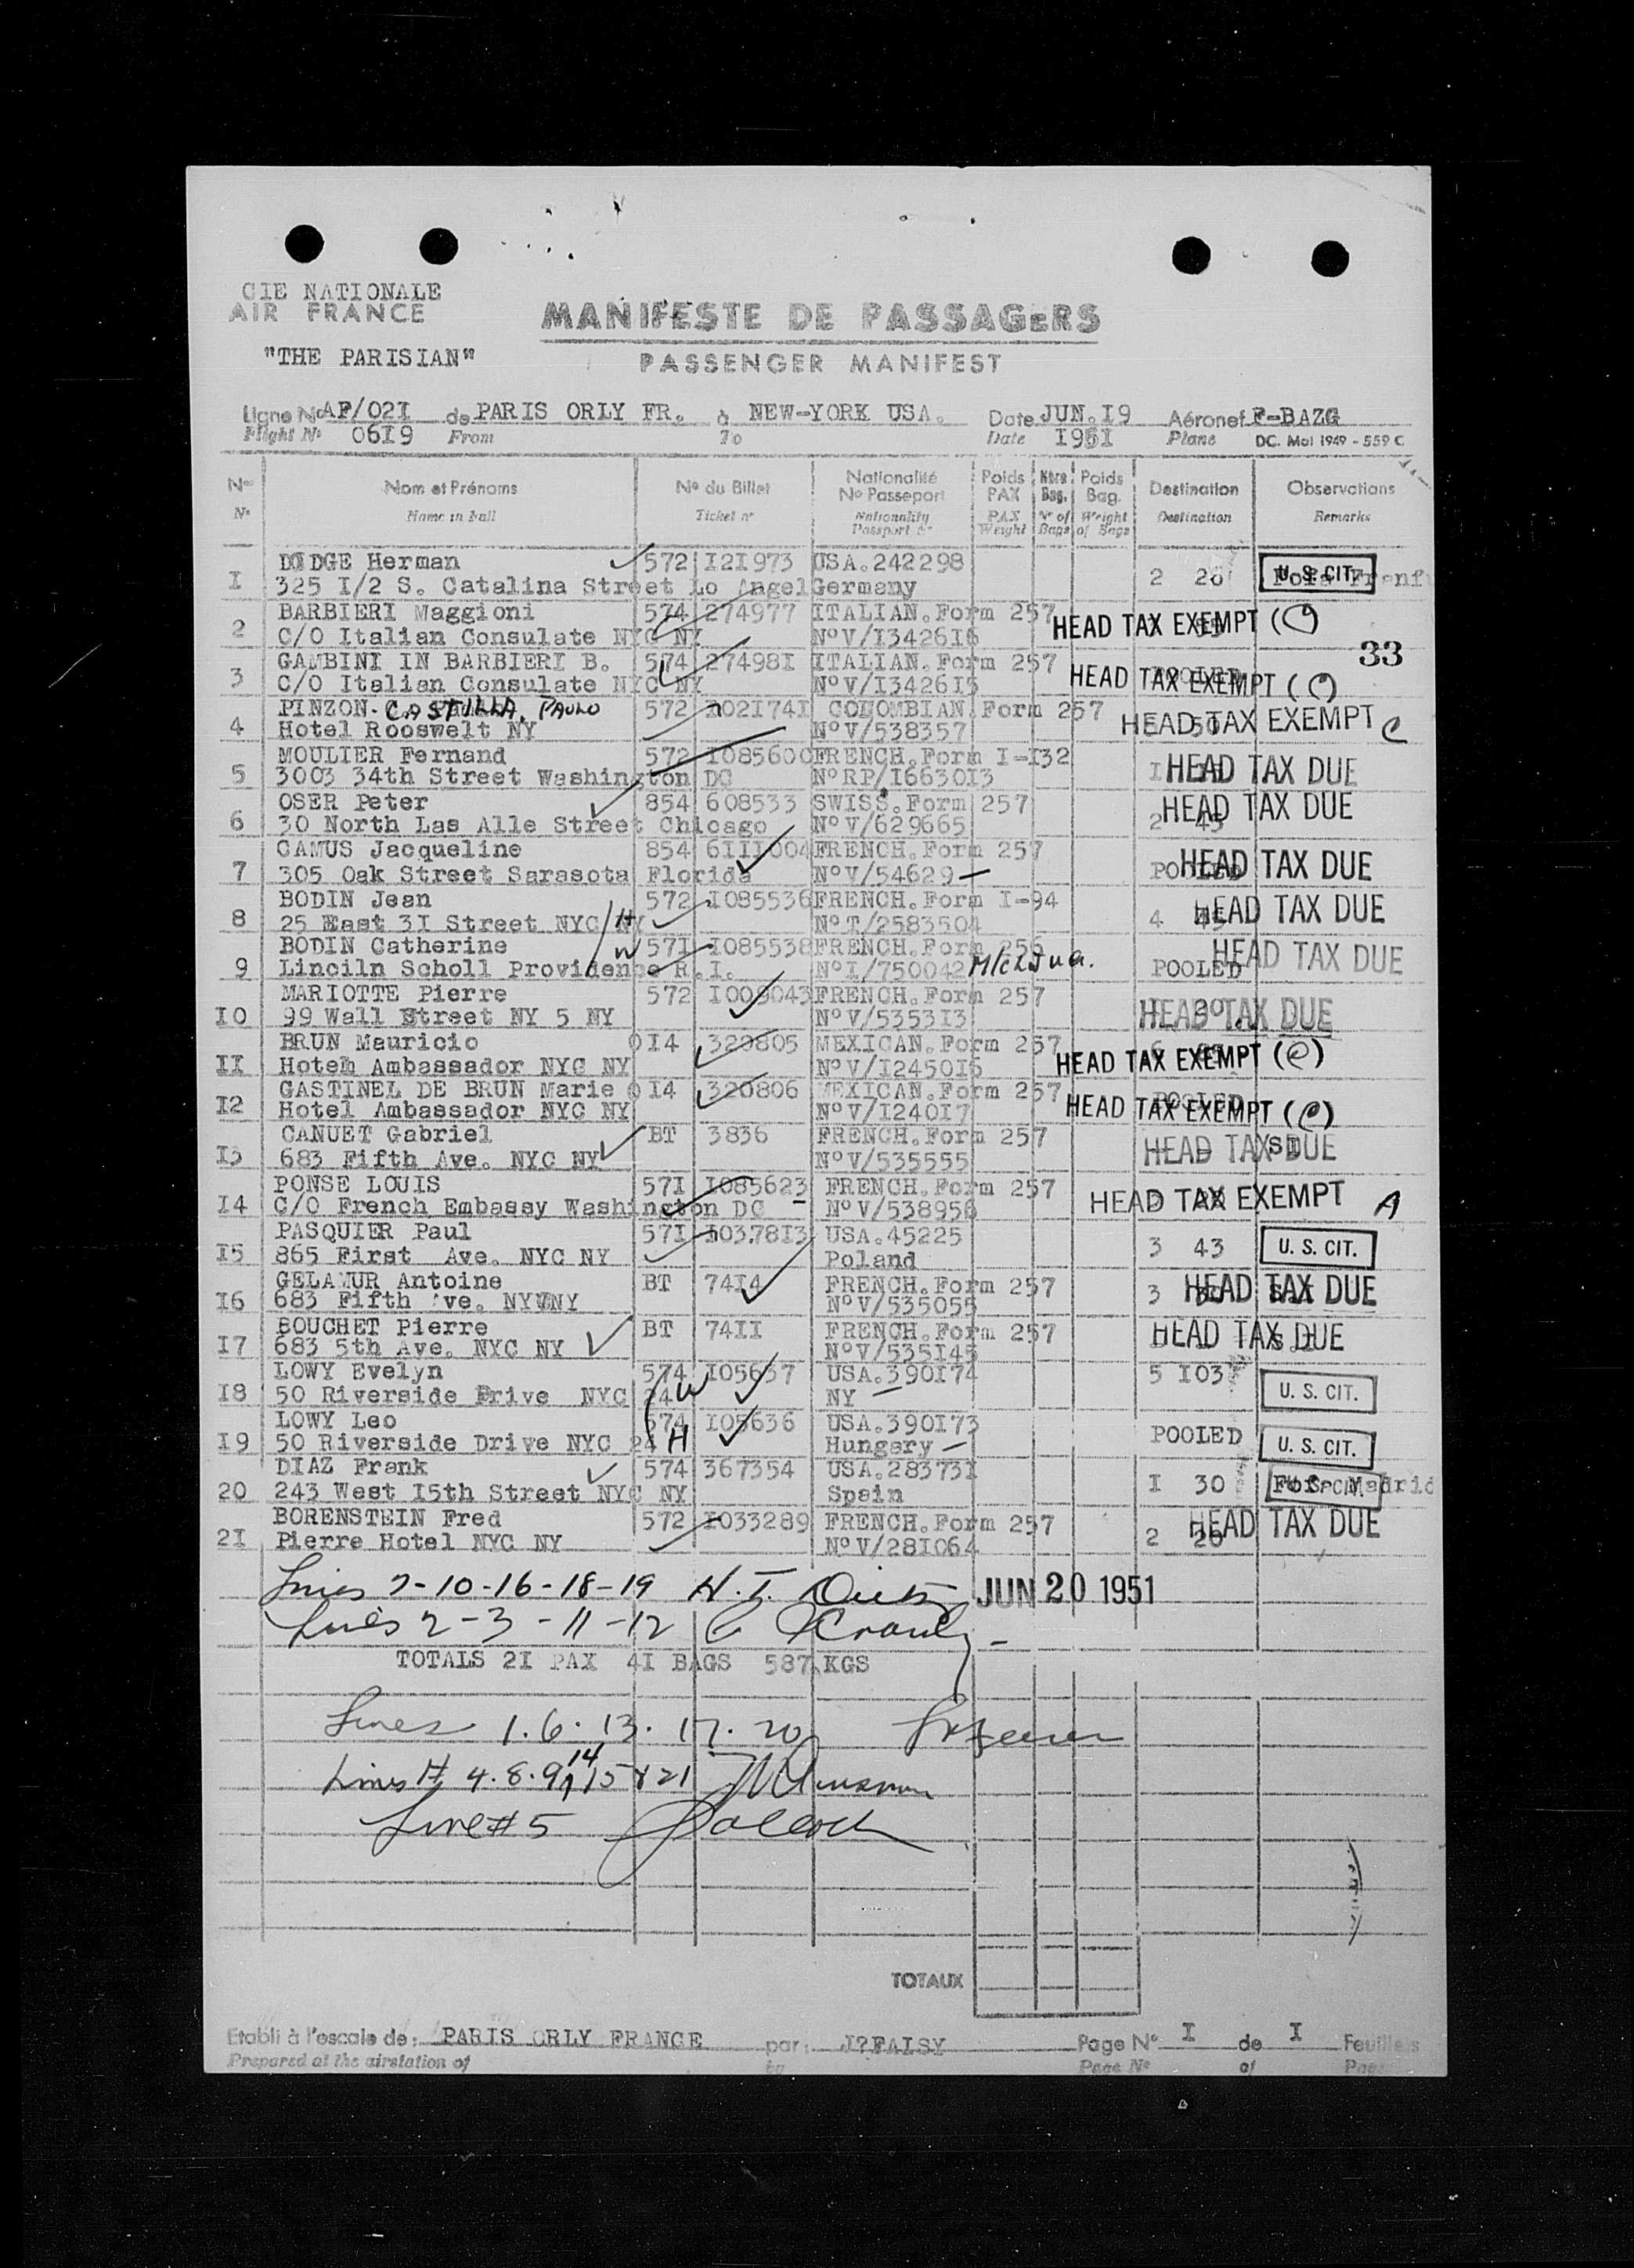 CIE NATIONALE
AIR FRANCE
MANIFESTE DE PASSAGERS
"THE PARISIAN"
PASSENGER MANIFEST
Ligne No AF/02I de PARIS ORLY FR. à NEW-YORK USA. Date JUN.I9 Aéronef F-BAZG
Flight No 06I9 From To Date I95I Plane DC. Mol 1949 - 559 C
Nos Nom et Prénoms No du Billet Nationalité No Passeport Poids PAX Nbre Bag. Poids Bag. Destination Observations
No Name in full Ticket no Nationality Passport No PAX Weight No of Bags Weight of Bags Destination Remarks
DODGE Herman 572 I2I973 USA.242298
I 325 I/2 S. Catalina Street Lo Angel Germany 2 26 U. S. CIT.
BARBIERI Maggioni 574 274977 ITALIAN.Form 257
2 C/O Italian Consulate NYC NY NoV/I3426I6 HEAD TAX EXEMPT (C)
33
GAMBINI IN BARBIERI B. 574 27498I ITALIAN.Form 257
3 C/O Italian Consulate NYC NY NoV/I3426I5 POOLED HEAD TAX EXEMPT (C)
PINZON CASTILLA, PAULO 572 I02I74I COLOMBIAN.Form 257
4 Hotel Rooswelt NY NoV/538357 HEAD TAX EXEMPT C
MOULIER Fernand 572 I085600 FRENCH.Form I-I32
5 3003 34th Street Washington DC NoRP/I6630I3 I HEAD TAX DUE
OSER Peter 854 608533 SWISS.Form 257
6 30 North Las Alle Street Chicago NoV/629665 2 45 HEAD TAX DUE
CAMUS Jacqueline 854 6III004 FRENCH.Form 257
7 305 Oak Street Sarasota Florida NoV/54629 POOLED HEAD TAX DUE
BODIN Jean 572 I085536 FRENCH.Form I-94
8 25 East 3I Street NYC NY H NoT/2583504 4 45 HEAD TAX DUE
BODIN Catherine W 57I I085538 FRENCH.Form 256
9 Linciln Scholl Providence R.I. NoI/750042 POOLED HEAD TAX DUE
MARIOTTE Pierre 572 I009043 FRENCH.Form 257
I0 99 Wall Street NY 5 NY NoV/5353I3 HEAD TAX DUE
BRUN Mauricio 0I4 320805 MEXICAN.Form 257
II Hotem Ambassador NYC NY NoV/I2450I6 HEAD TAX EXEMPT (C)
GASTINEL DE BRUN Marie 0I4 320806 MEXICAN.Form 257
I2 Hotel Ambassador NYC NY NoV/I240I7 POOLED HEAD TAX EXEMPT (C)
CANUET Gabriel BT 3836 FRENCH.Form 257
I3 683 Fifth Ave. NYC NY NoV/535555 HEAD TAX DUE
PONSE LOUIS 57I I085623 FRENCH.Form 257
I4 C/O French Embassy Washington DC NoV/538956 HEAD TAX EXEMPT A
PASQUIER Paul 57I I0378I3 USA.45225
I5 865 First Ave. NYC NY Poland 3 43 U. S. CIT.
GELAMUR Antoine BT 74I4 FRENCH.Form 257
I6 683 Fifth Ave. NYC NY NoV/535055 3 HEAD TAX DUE
BOUCHET Pierre BT 74II FRENCH.Form 257
I7 683 5th Ave. NYC NY NoV/535I45 HEAD TAX DUE
LOWY Evelyn 574 I05637 USA.390I74 5 I03
I8 50 Riverside Drive NYC 24 W NY U. S. CIT.
LOWY Leo 574 I05636 USA.390I73
I9 50 Riverside Drive NYC 24 H Hungary POOLED U. S. CIT.
DIAZ Frank 574 367354 USA.28373I
20 243 West I5th Street NYC NY Spain I 30 From Madrid U. S. CIT.
BORENSTEIN Fred 572 I033289 FRENCH.Form 257
2I Pierre Hotel NYC NY NoV/28I064 2 20 HEAD TAX DUE
Lines 7-10-16-18-19 H.T. JUN 20 1951
Lines 2-3-11-12
TOTALS 2I PAX 4I BAGS 587 KGS
Lines 1. 6. 13. 17. 20
Lines # 4. 8. 9, 14 15 & 21
Line # 5
TOTAUX
Etabli à l'escale de: PARIS ORLY FRANCE par: J?FAISY Page No I de I Feuillets
Prepared at the airstation of by Page No of Pages